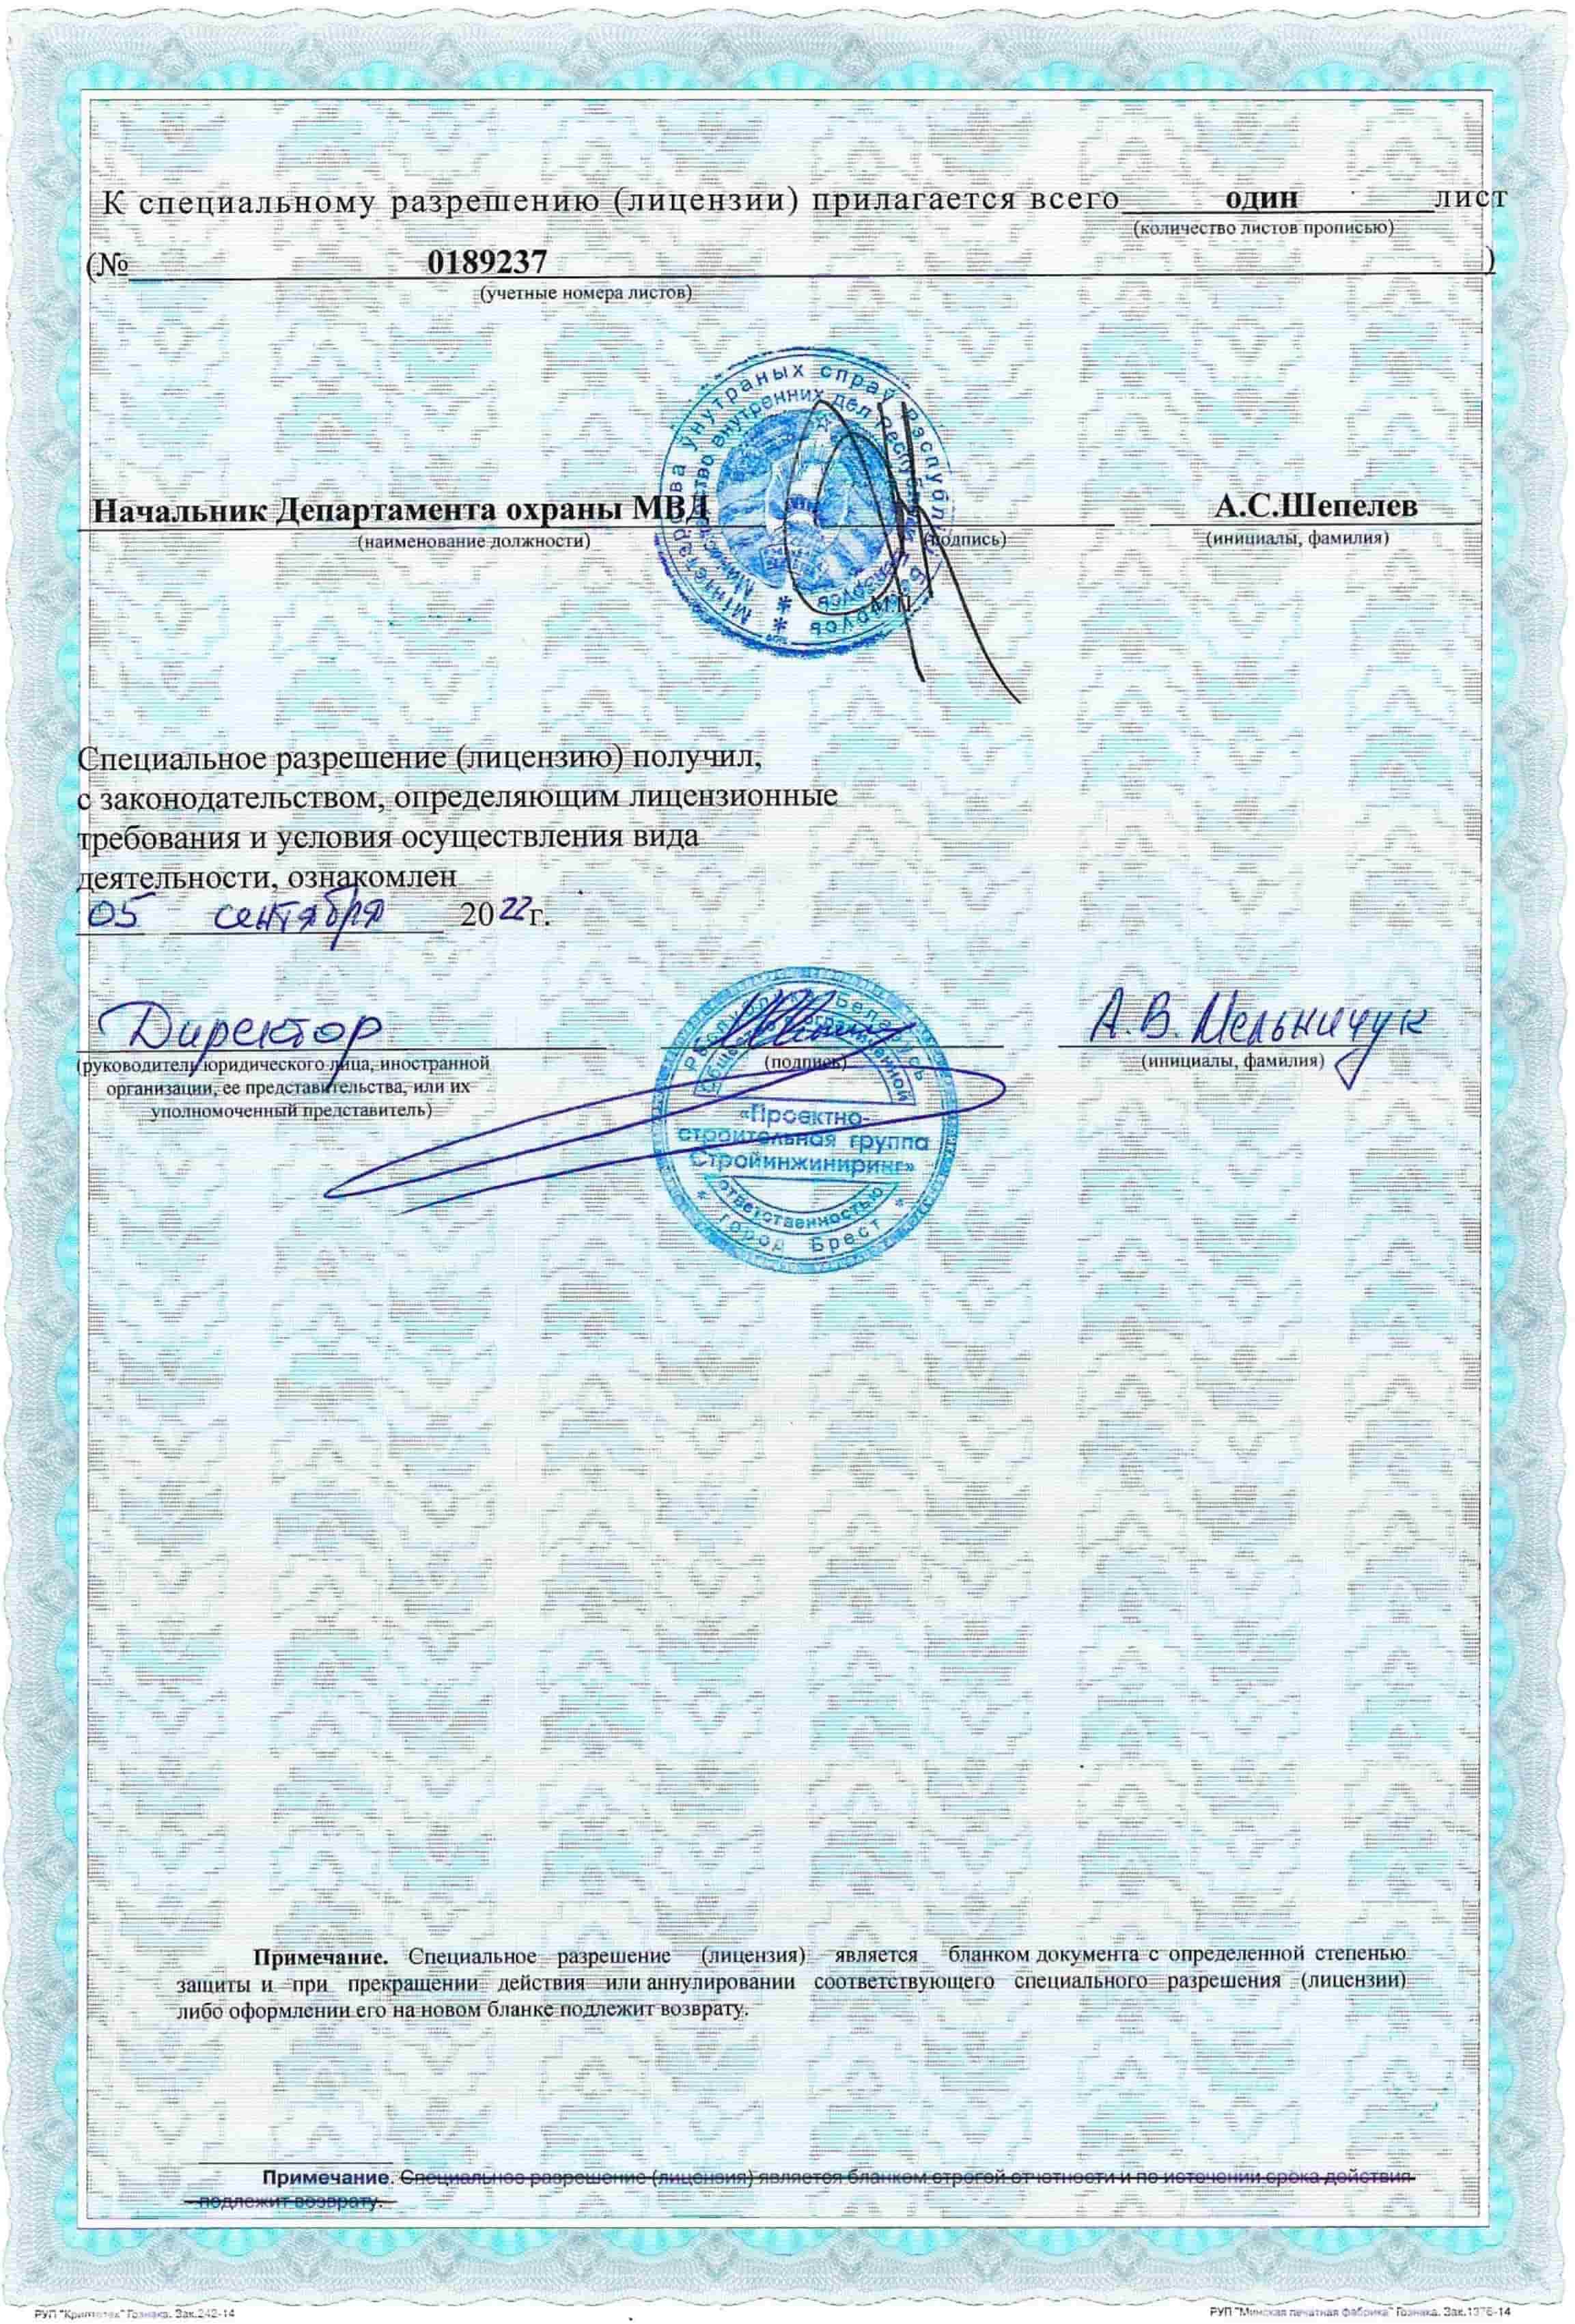 К специальному разрешению (лицензии) прилагается всего один лист
(количество листов прописью)
(№ 0189237 )
(учетные номера листов)
Міністэрства ўнутраных спраў Рэспублікі Беларусь
Министерство внутренних дел Республики Беларусь
Начальник Департамента охраны МВД А.С.Шепелев
(наименование должности) (подпись) (инициалы, фамилия)
М.П.
Специальное разрешение (лицензию) получил,
с законодательством, определяющим лицензионные
требования и условия осуществления вида
деятельности, ознакомлен
05 сентября 2022г.
Директор А.В. Мельничук
(руководитель юридического лица, иностранной
организации, ее представительства, или их
уполномоченный представитель)
(подпись)
(инициалы, фамилия)
Республика Беларусь
«Проектно-
строительная группа
Стройинжиниринг»
ответственностью
* город Брест *
Примечание. Специальное разрешение (лицензия) является бланком документа с определенной степенью
защиты и при прекращении действия или аннулировании соответствующего специального разрешения (лицензии)
либо оформлении его на новом бланке подлежит возврату.
Примечание. Специальное разрешение (лицензия) является бланком строгой отчетности и по истечении срока действия
подлежит возврату.
РУП "Криптотех" Гознака. Зак.242-14
РУП "Минская печатная фабрика" Гознака. Зак.1376-14